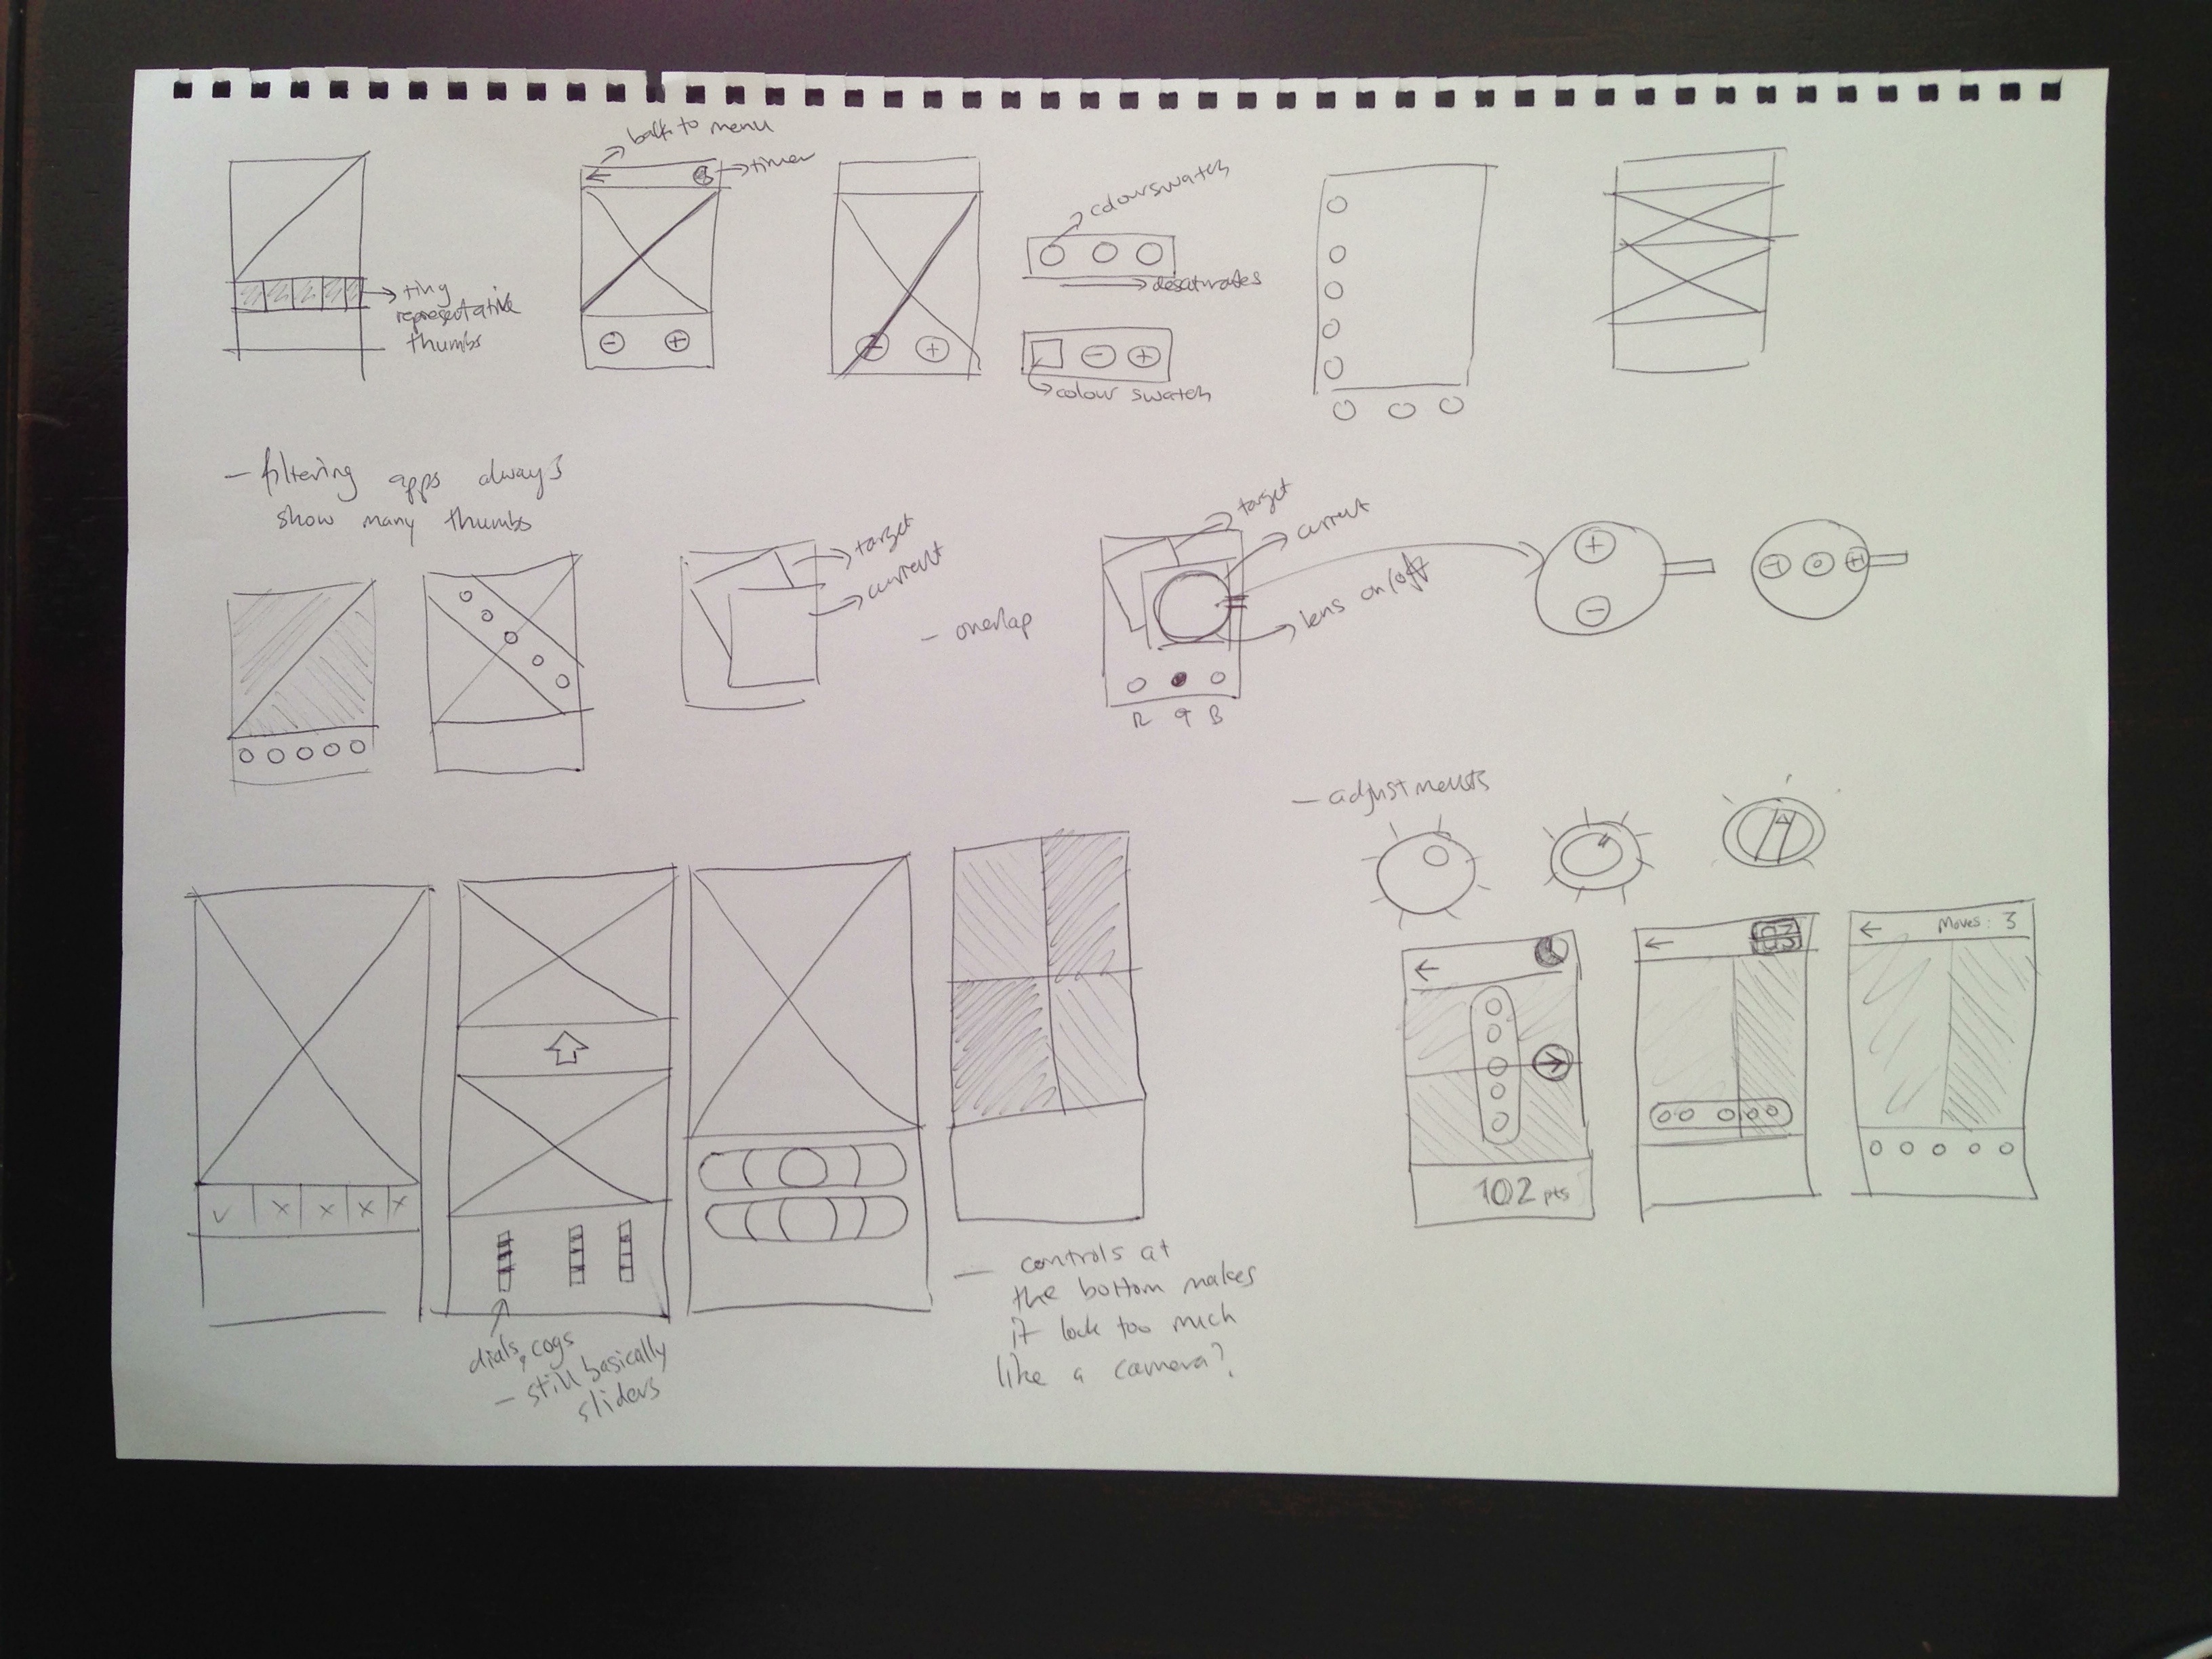 back to menu
timer
colour swatch
desaturates
tiny
representative
thumbs
colour swatch
- filtering apps always
show many thumbs
target
current
- overlap
target
current
lens on/off
R G B
- adjustments
Moves: 3
102 pts
- controls at
the bottom makes
it look too much
like a camera?
dials, cogs
- still basically
sliders